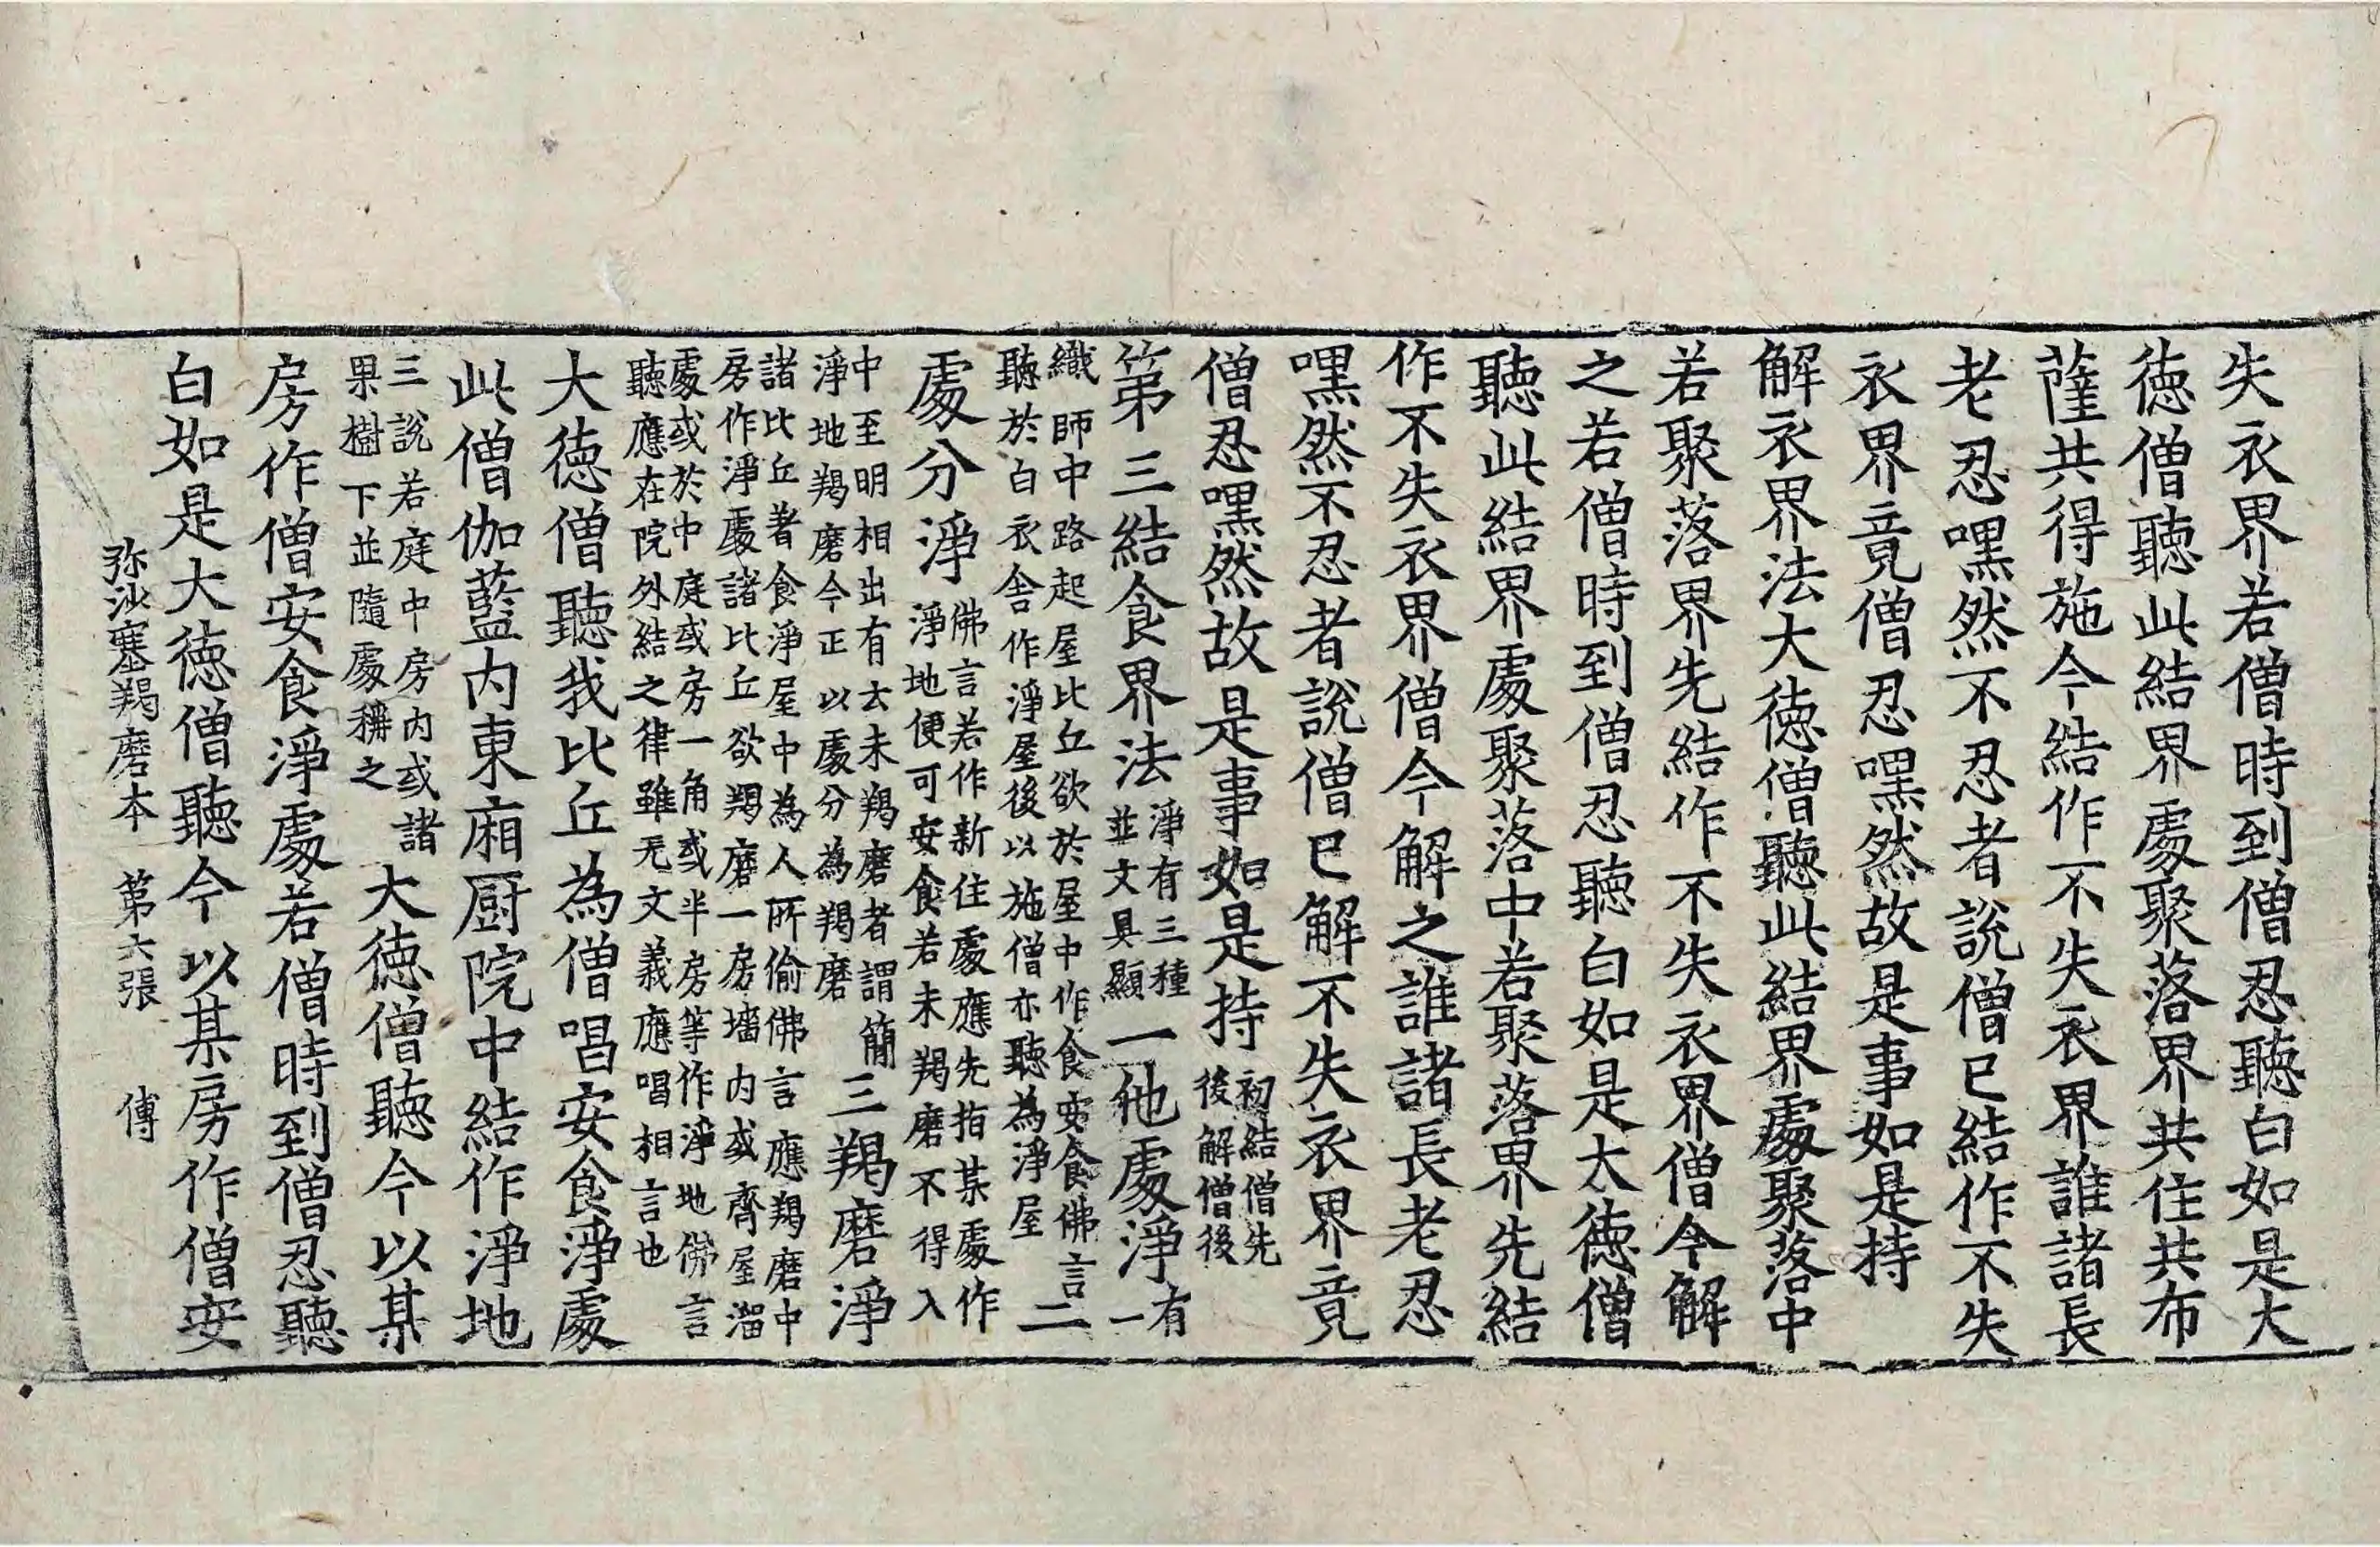 失衣界若僧時到僧忍聽白如是大
德僧聽此結界處聚落界共住共布
薩共得施今結作不失衣界誰諸長
老忍嘿然不忍者說僧已結作不失
衣界竟僧忍嘿然故是事如是持
解衣界法大德僧聽此結界處聚落中
若聚落界先結作不失衣界僧今解
之若僧時到僧忍聽白如是大德僧
聽此結界處聚落中若聚落界先結
作不失衣界僧今解之誰諸長老忍
嘿然不忍者說僧已解不失衣界竟
僧忍嘿然故是事如是持初結僧先後解僧後
第三結食界法淨有三種並文具顯一他處淨有一
織師中路起屋比丘欲於屋中作食安食佛言聽於白衣舍作淨屋後以施僧亦聽為淨屋二
處分淨佛言若作新住處應先指某處作淨地便可安食若未羯磨不得入
中至明相出有去未羯磨者謂簡淨地羯磨今正以處分為羯磨三羯磨淨
諸比丘著食淨屋中為人所偷佛言應羯磨中房作淨處諸比丘欲羯磨一房墻內或齊屋溜
處或於中庭或房一角或半房等作淨地佛言聽應在院外結之律雖无文義應唱相言也
大德僧聽我比丘為僧唱安食淨處
此僧伽藍內東廂厨院中結作淨地
三說若庭中房內或諸果樹下並隨處稱之大德僧聽今以某
房作僧安食淨處若僧時到僧忍聽
白如是大德僧聽今以某房作僧安
弥沙塞羯磨本 第六張 傅